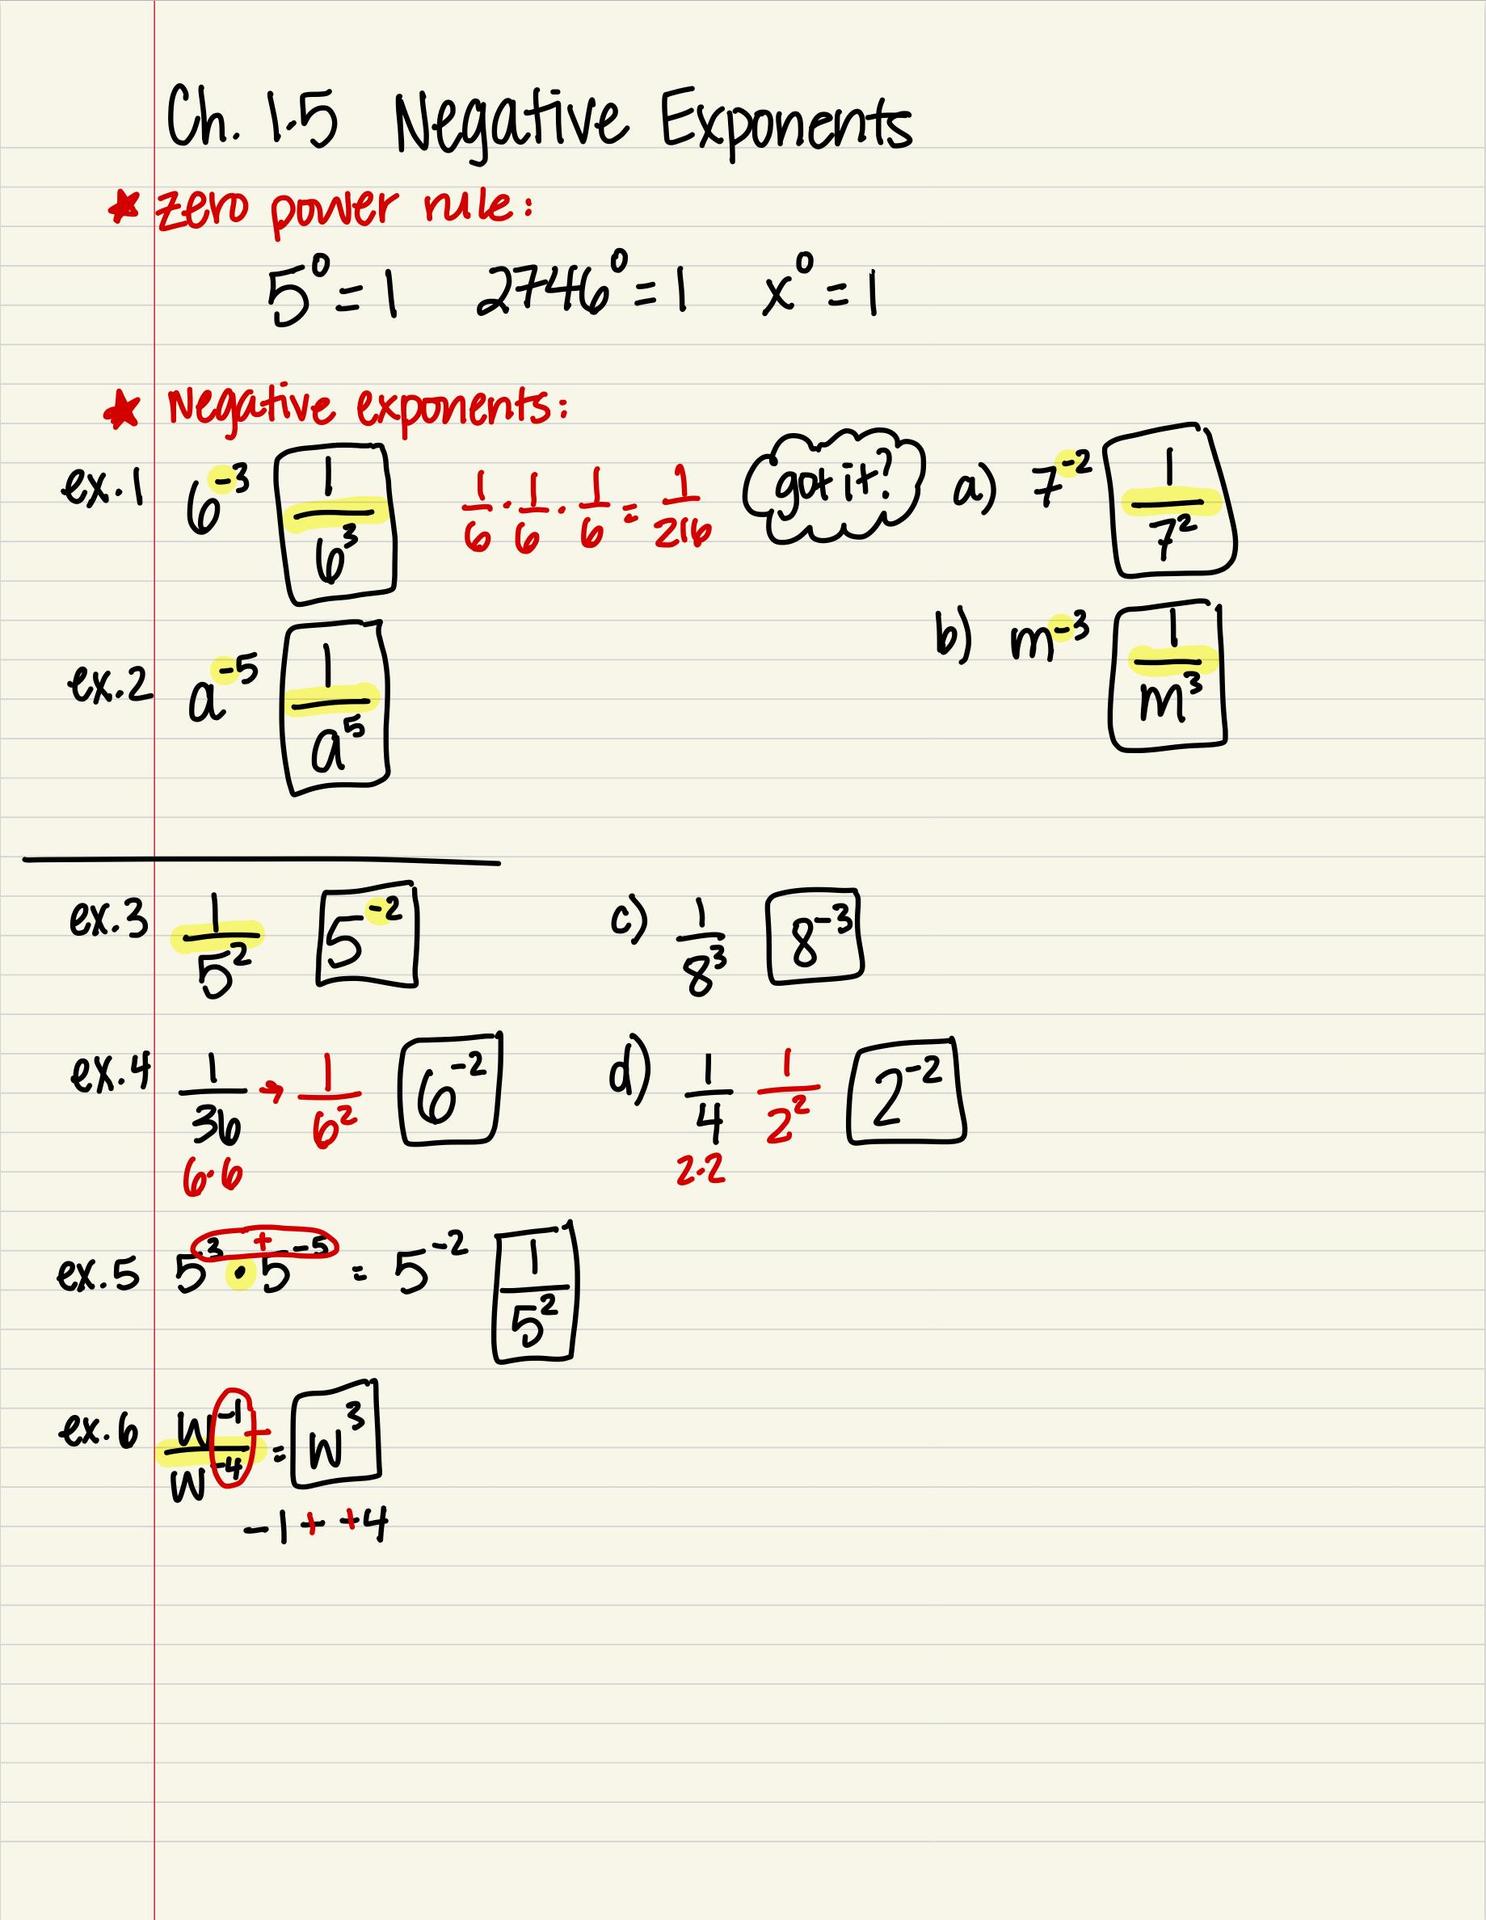 Ch. 1.5 Negative Exponents
★ zero power rule:
5⁰ = 1 2746⁰ = 1 x⁰ = 1
★ Negative exponents:
ex.1 6⁻³ 1/6³ 1/6 · 1/6 · 1/6 = 1/216 got it? a) 7⁻² 1/7²
b) m⁻³ 1/m³
ex.2 a⁻⁵ 1/a⁵
ex.3 1/5² 5⁻² c) 1/8³ 8⁻³
ex.4 1/36 → 1/6² 6⁻² d) 1/4 1/2² 2⁻²
6·6 2·2
ex.5 5³ + · 5⁻⁵ = 5⁻² 1/5²
ex.6 w⁻¹/w⁻⁴ − = w³
-1 + +4